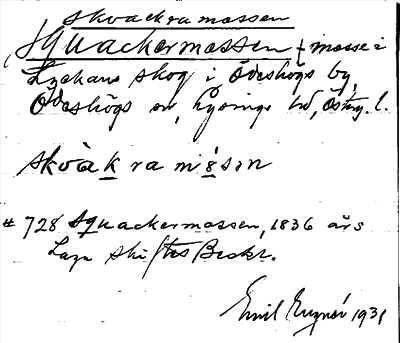 Skvackramossen
Squackermossen, mosse i
Lychans skog i Ödeshögs by,
Ödeshögs sn, Lysings hd, Östg. l.
skvàkramåsən
# 728 Squackermossen, 1836 års
Laga skiftes Beskr.
Emil 1931